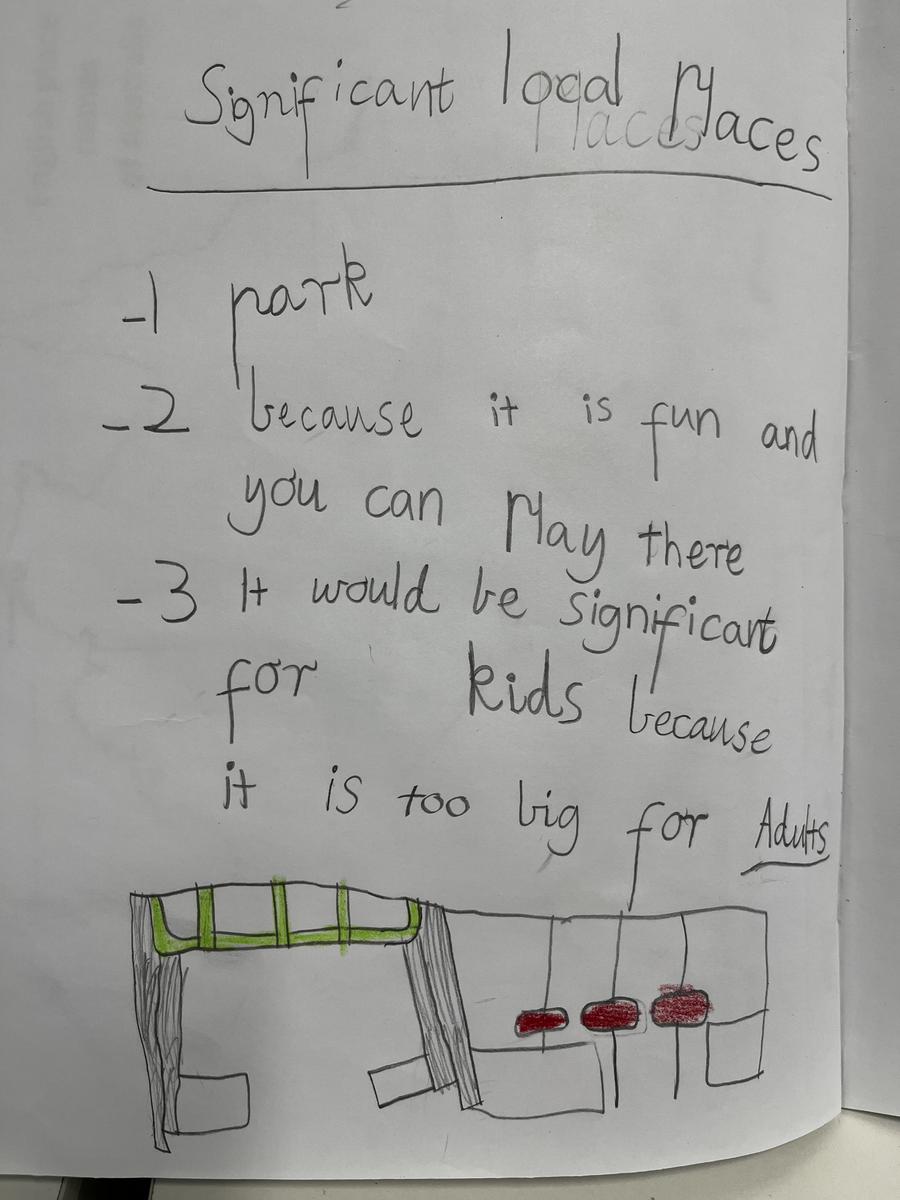 Significant local Places
-1 park
-2 because it is fun and
you can Play there
-3 It would be significant
for kids because
it is too big for Adults